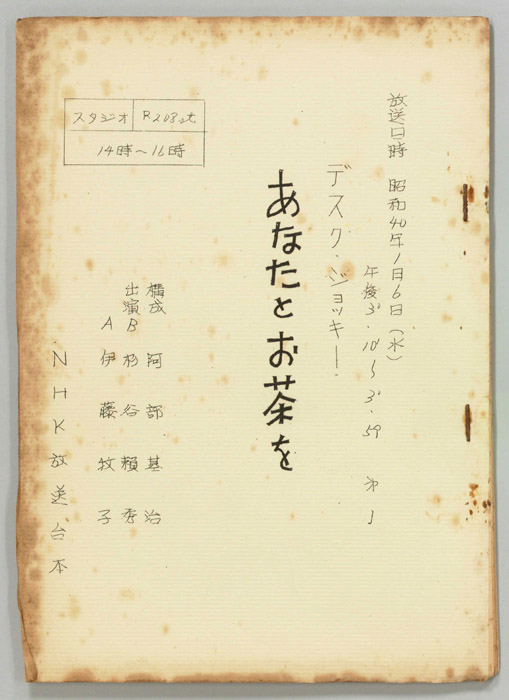 放送日時 昭和40年1月6日（水）
午後3°・10′〜3°・59 才1
デスク・ジョッキー・
あなたとお茶を
構成 阿部基治
出演B 杉谷頼秀
A 伊藤牧子
NHK放送台本
スタジオ R208st
14時〜16時